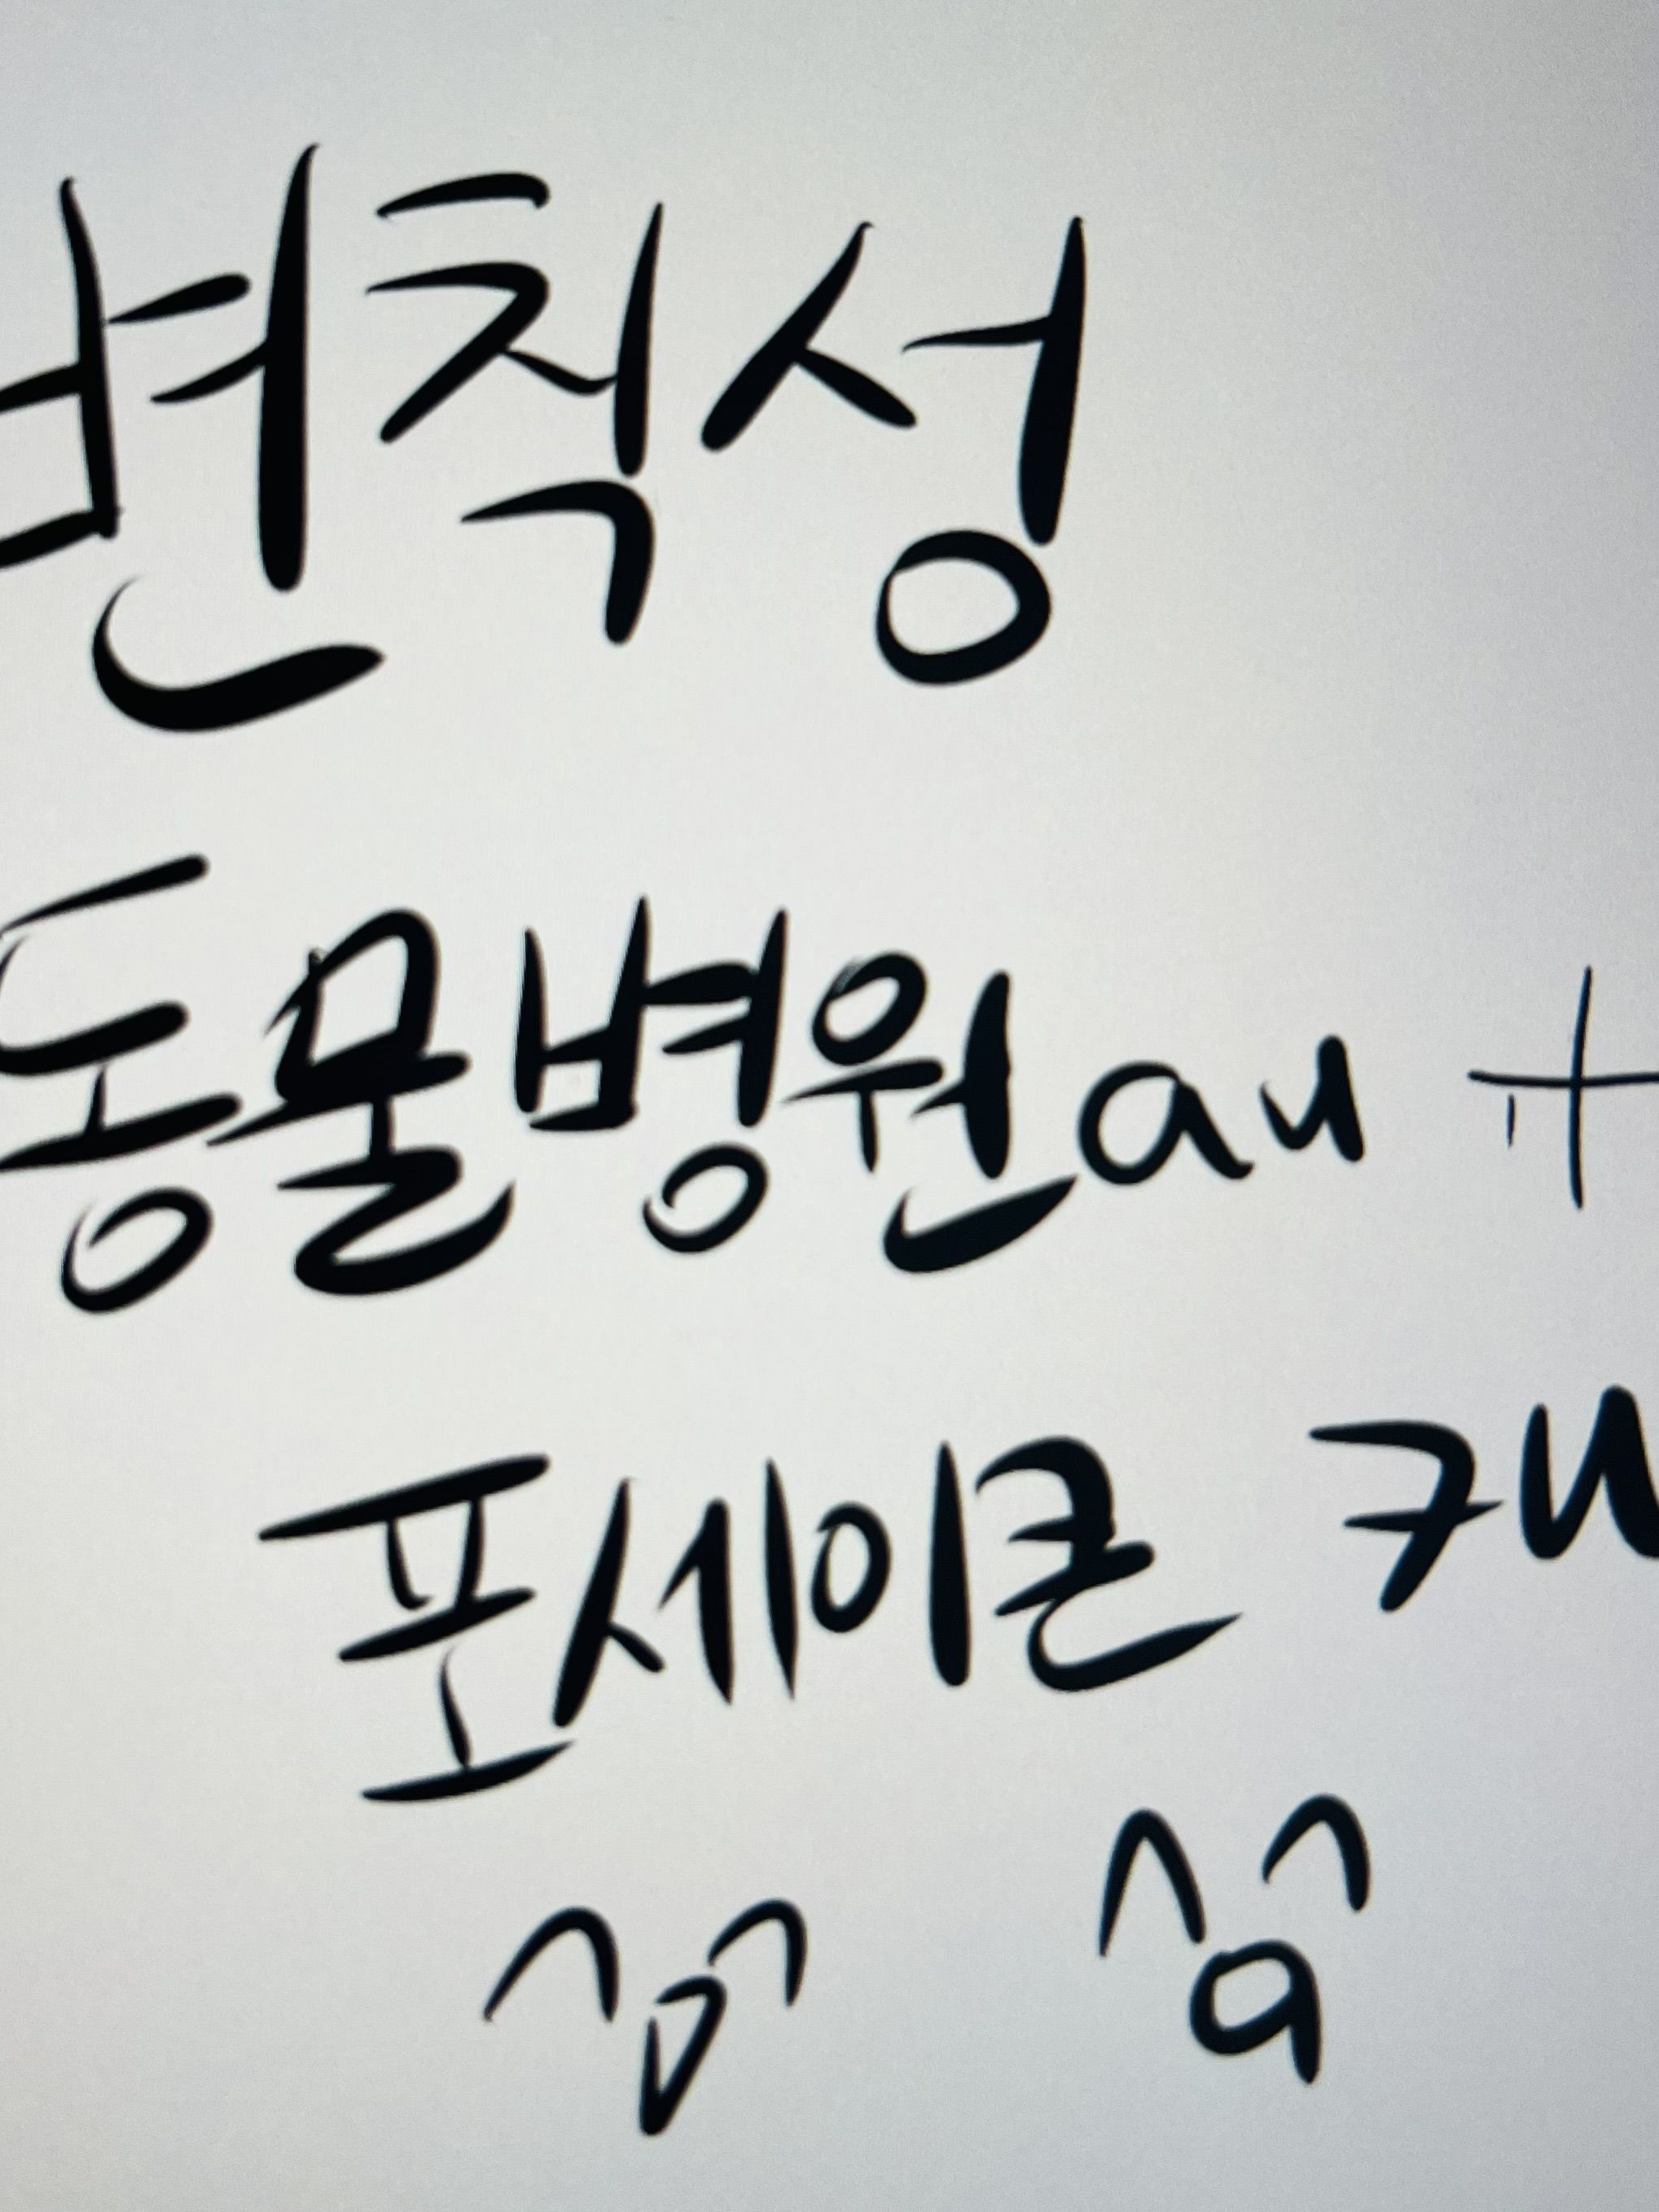 변칙성
동물병원au +
포세이큰
^0^ ^a^